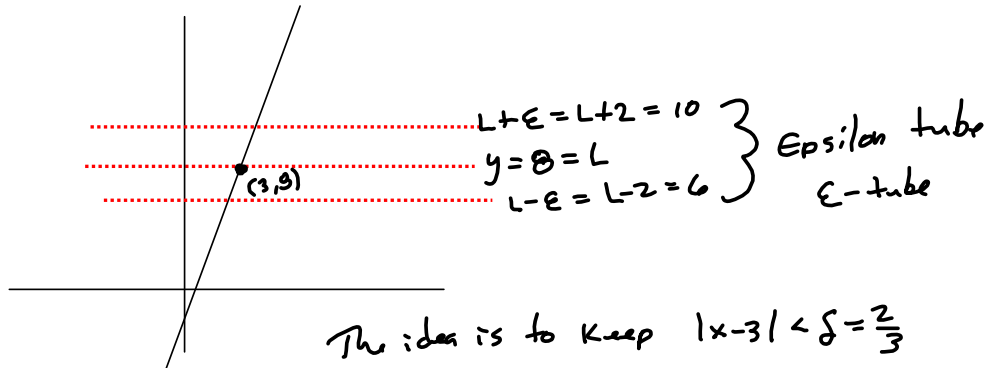 L+ε = L+2 = 10
y = 8 = L
(3,8)
L-ε = L-2 = 6
Epsilon tube
ε-tube
The idea is to keep |x-3| < δ = 2/3